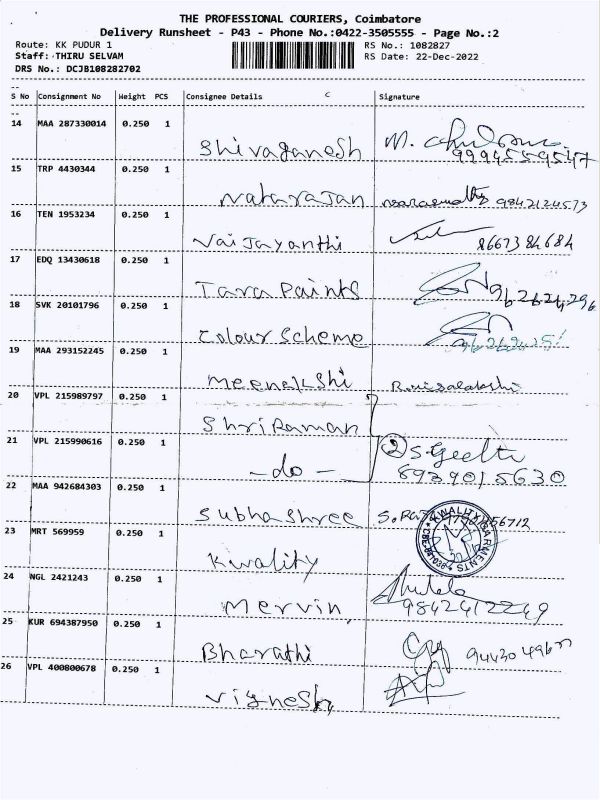 THE PROFESSIONAL COURIERS, Coimbatore
Delivery Runsheet - P43 - Phone No.:0422-3505555 - Page No.:2
Route: KK PUDUR 1 RS No.: 1082827
Staff: THIRU SELVAM RS Date: 22-Dec-2022
DRS No.: DCJB108282702
S No Consignment No Weight PCS Consignee Details Signature
14 MAA 287330014 0.250 1
Shivaganesh M.
9994559547
15 TRP 4430344 0.250 1
Natarajan 9842124573
16 TEN 1953234 0.250 1
Vaijayanthi 8667384684
17 EDQ 13430618 0.250 1
Tara Paints
18 SVK 20101796 0.250 1
Colour Scheme
19 MAA 293152245 0.250 1
Meenakshi
20 VPL 215989797 0.250 1
Shri Raman
21 VPL 215990616 0.250 1
-do- 2 S. Geetha
8939015630
22 MAA 942684303 0.250 1
Subhashree
23 MRT 569959 0.250 1
Kwality KWALITY GARMENTS
24 NGL 2421243 0.250 1
Mervin 9842412249
25 KUR 694387950 0.250 1
Bharathi
26 VPL 400800678 0.250 1
Vignesh